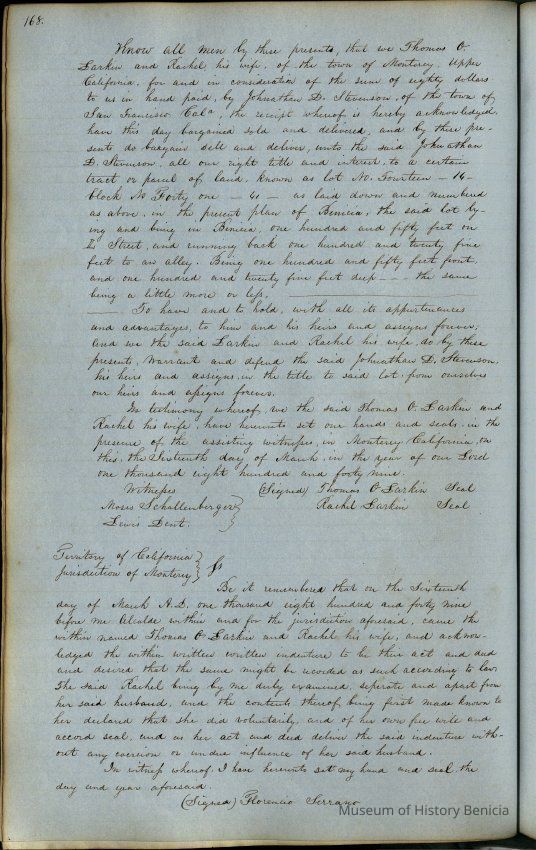 168.
Know all men by these presents, that we Thomas O.
Larkin and Rachel his wife, of the town of Monterey, Upper
California, for and in consideration of the sum of eighty dollars
to us in hand paid, by Johnathan D. Stevenson, of the town of
San Francisco Cala, the receipt whereof is hereby acknowledged,
have this day bargained sold and delivered, and by these pre-
sents do bargain sell and deliver, unto the said Johnathan
D. Stevenson, all our right title and interest, to a certain
tract or parcel of land, known as lot No. Fourteen - 14 -
block No Forty one - 41 - as laid down and numbered
as above, in the present plan of Benicia, the said lot ly-
ing and being in Benicia, one hundred and fifty feet on
L Street, and running back one hundred and twenty five
feet to an alley. Being one hundred and fifty feet front,
and one hundred and twenty five feet deep - - - the same
being a little more or less,
To have and to hold, with all its appurtenances
and advantages, to him and his heirs and assigns forever,
and we the said Larkin and Rachel his wife, do by these
presents, warrant and defend the said Johnathan D. Stevenson,
his heirs and assigns, in the title to said lot, from ourselves
our heirs and assigns forever.
In testimony whereof, we the said Thomas O. Larkin and
Rachel his wife, have hereunto set our hands and seals, in the
presence of the assisting witnesses, in Monterey California, on
this, the Sixteenth day of March, in the year of our Lord
one thousand eight hundred and forty nine.
Witnesses (Signed) Thomas O Larkin Seal
Moses Schallenberger Rachel Larkin Seal
Lewis Dent.
Territory of California
Jurisdiction of Monterey } ss
Be it remembered that on the Sixteenth
day of March A.D. one thousand eight hundred and forty nine
before me Alcalde within and for the jurisdiction aforesaid, came the
within named Thomas O Larkin and Rachel his wife, and acknow-
ledged the within written written indenture to be their act and deed
and desired that the same might be recorded as such according to law.
The said Rachel being by me duly examined, seperate and apart from
her said husband, and the contents thereof being first made known to
her declared that she did voluntarily, and of her own free will and
accord seal, and as her act and deed deliver the said indenture with-
out any coercion or undue influence of her said husband.
In witness whereof I have hereunto set my hand and seal the
day and year aforesaid.
(Signed) Florencio Serrano
Museum of History Benicia